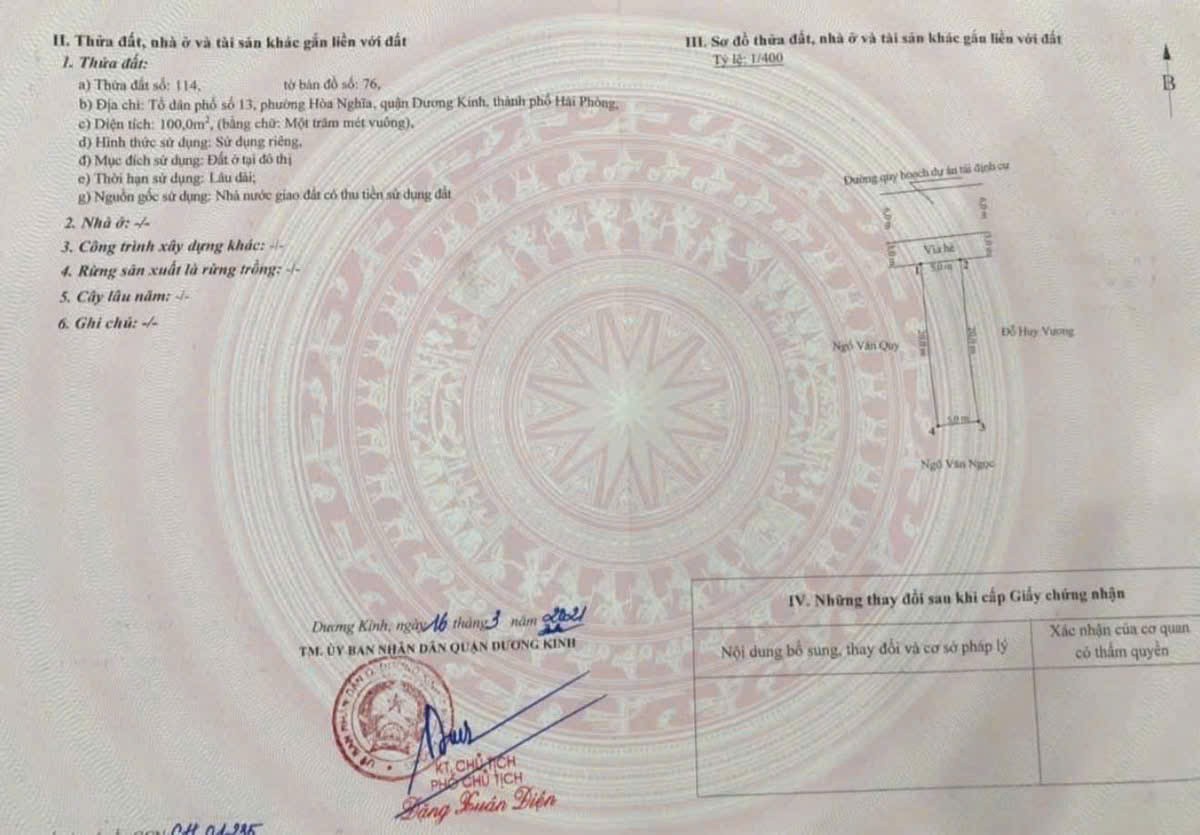 II. Thửa đất, nhà ở và tài sản khác gắn liền với đất
1. Thửa đất:
a) Thửa đất số: 114, tờ bản đồ số: 76,
b) Địa chỉ: Tổ dân phố số 13, phường Hòa Nghĩa, quận Dương Kinh, thành phố Hải Phòng,
c) Diện tích: 100,0m², (bằng chữ: Một trăm mét vuông),
d) Hình thức sử dụng: Sử dụng riêng,
đ) Mục đích sử dụng: Đất ở tại đô thị
e) Thời hạn sử dụng: Lâu dài;
g) Nguồn gốc sử dụng: Nhà nước giao đất có thu tiền sử dụng đất
2. Nhà ở: -/-
3. Công trình xây dựng khác: -/-
4. Rừng sản xuất là rừng trồng: -/-
5. Cây lâu năm: -/-
6. Ghi chú: -/-
III. Sơ đồ thửa đất, nhà ở và tài sản khác gắn liền với đất
Tỷ lệ: 1/400
B
Đường quy hoạch dự án tái định cư
6,0 m
6,0 m
Vỉa hè
3,0 m
3,0 m
1 5,0 m 2
20,0 m
20,0 m
Ngô Văn Quy
Đỗ Huy Vương
4 5,0 m 3
Ngô Văn Ngọc
Dương Kinh, ngày 16 tháng 3 năm 2021
TM. ỦY BAN NHÂN DÂN QUẬN DƯƠNG KINH
KT. CHỦ TỊCH
PHÓ CHỦ TỊCH
Đặng Xuân Diện
IV. Những thay đổi sau khi cấp Giấy chứng nhận
Nội dung bổ sung, thay đổi và cơ sở pháp lý
Xác nhận của cơ quan
có thẩm quyền